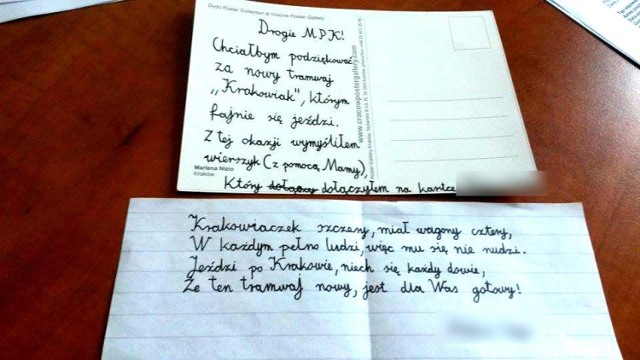 Dydo Poster Collection & Cracow Poster Gallery
Drogie M P K!
Chciałbym podziękować
za nowy tramwaj
„Krakowiak", którym
fajnie się jeździ.
Z tej okazji wymyśliłem
wierszyk (z pomocą Mamy),
Który dołączyłem na kartce
Marlena Nizio
Kraków
www.cracowpostergallery.com
Krakowiaczek szczery, miał wagony cztery,
W każdym pełno ludzi, więc mu się nie nudzi.
Jeździ po Krakowie, niech się każdy dowie,
Że ten tramwaj nowy, jest dla Was gotowy!